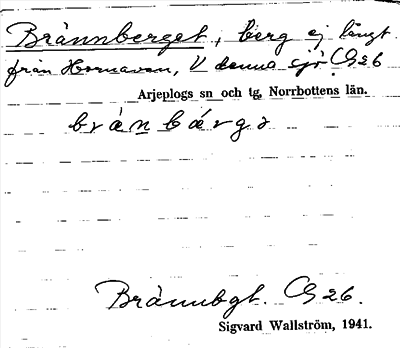 Brännberget, berg ej långt
från Hornavan, V denna sjö. C G 26
Arjeplogs sn och tg, Norrbottens län.
bränbärgə
Brännbgt. C G 26.
Sigvard Wallström, 1941.